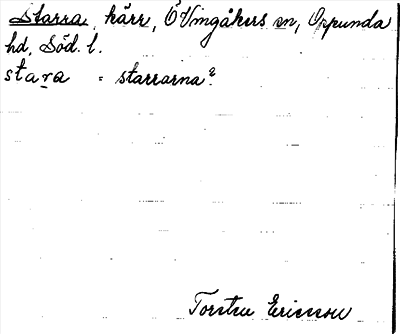 Starra, kärr, Ö Vingåkers sn, Oppunda
hd, Söd. l.
sta̱ra = starrarna?
Torsten Ericsson